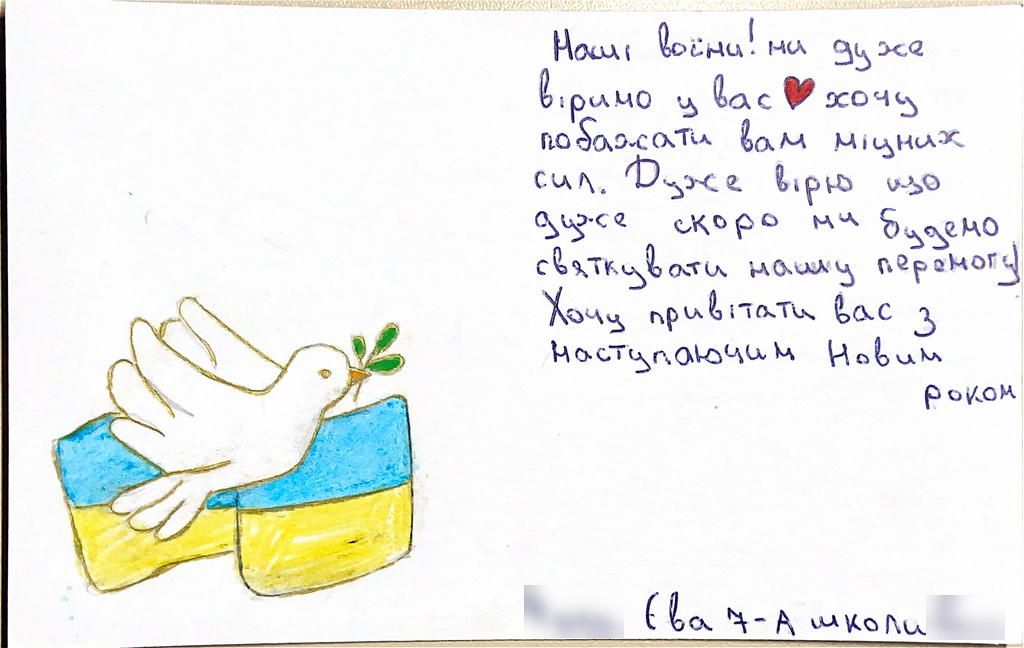 Наші воїни! ми дуже
віримо у вас ❤ хочу
побажати вам міцних
сил. Дуже вірю що
дуже скоро ми будемо
святкувати нашу перемогу!
Хочу привітати вас з
наступаючим Новим
роком
Єва 7-А школи